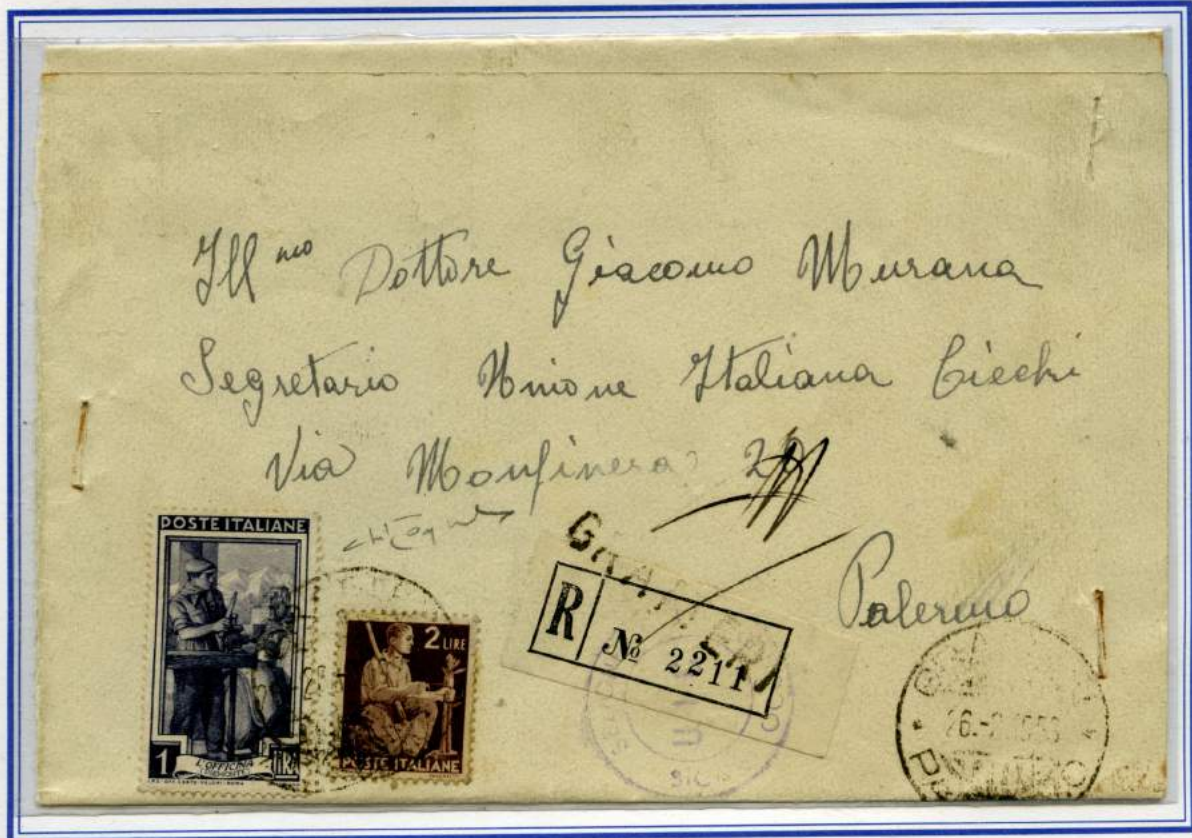 Ill.mo Dottore Giacomo Murana
Segretario Unione Italiana Ciechi
Via Monfinera
Palermo
POSTE ITALIANE
1 L'OFFICINA LIRA
2 LIRE
POSTE ITALIANE
R № 2211
SIC
26.-2.1953